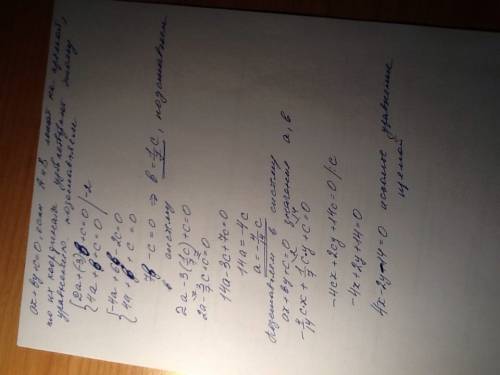 ax + by + c = 0, если A и B лежат на прямой,
то их координаты удовлетворяют данному
уравнению подставляем
{2a + (-3)b + c = 0 | ·(-2)
{4a + b + c = 0
{-4a + 6b - 2c = 0
{4a + b + c = 0
7b - c = 0 ⇒ b = 1/7 c, подставляем
в систему
2a - 3(1/7 c) + c = 0
2a - 3/7 c + c = 0
14a - 3c + 7c = 0
14a = -4c
a = -4/14 c
подставляем в систему
ax + by + c = 0 значения a, b
-4/14 cx + 1/7 c·y + c = 0
-4cx + 2cy + 14c = 0 | :c
-4x + 2y + 14 = 0
4x - 2y - 14 = 0 искомое уравнение